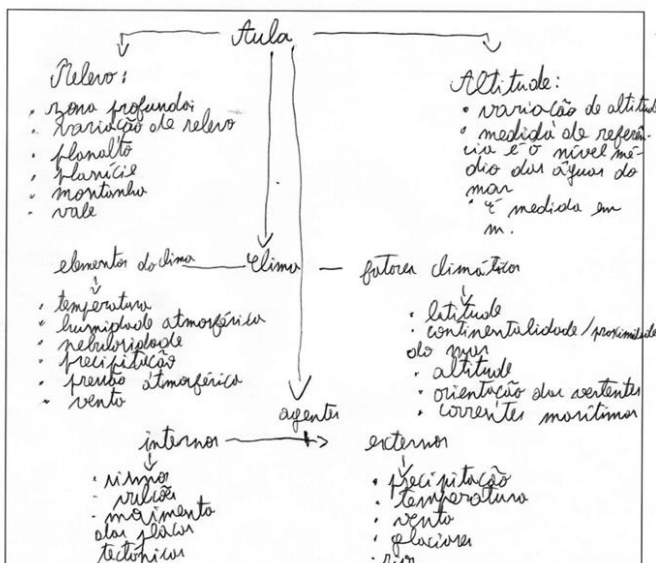 Aula
Relevo:
• zona profunda;
• variação de relevo
• planalto
• planície
• montanha
• vale
Altitude:
• variação de altitude
• medida de referên-
cia é o nível mé-
dio das águas do
mar
• É medida em
m.
elementos do clima — Clima — fatores climáticos
• temperatura
• humidade atmosférica
• nebulosidade
• precipitação
• pressão atmosférica
• vento
• latitude
• continentalidade/proximidade
do mar
• altitude
• orientação das vertentes
• correntes marítimas
agentes
internos
• sismos
• vulcões
• movimento
das placas
tectónicas
externos
• precipitação
• temperatura
• vento
• glaciares
• rios